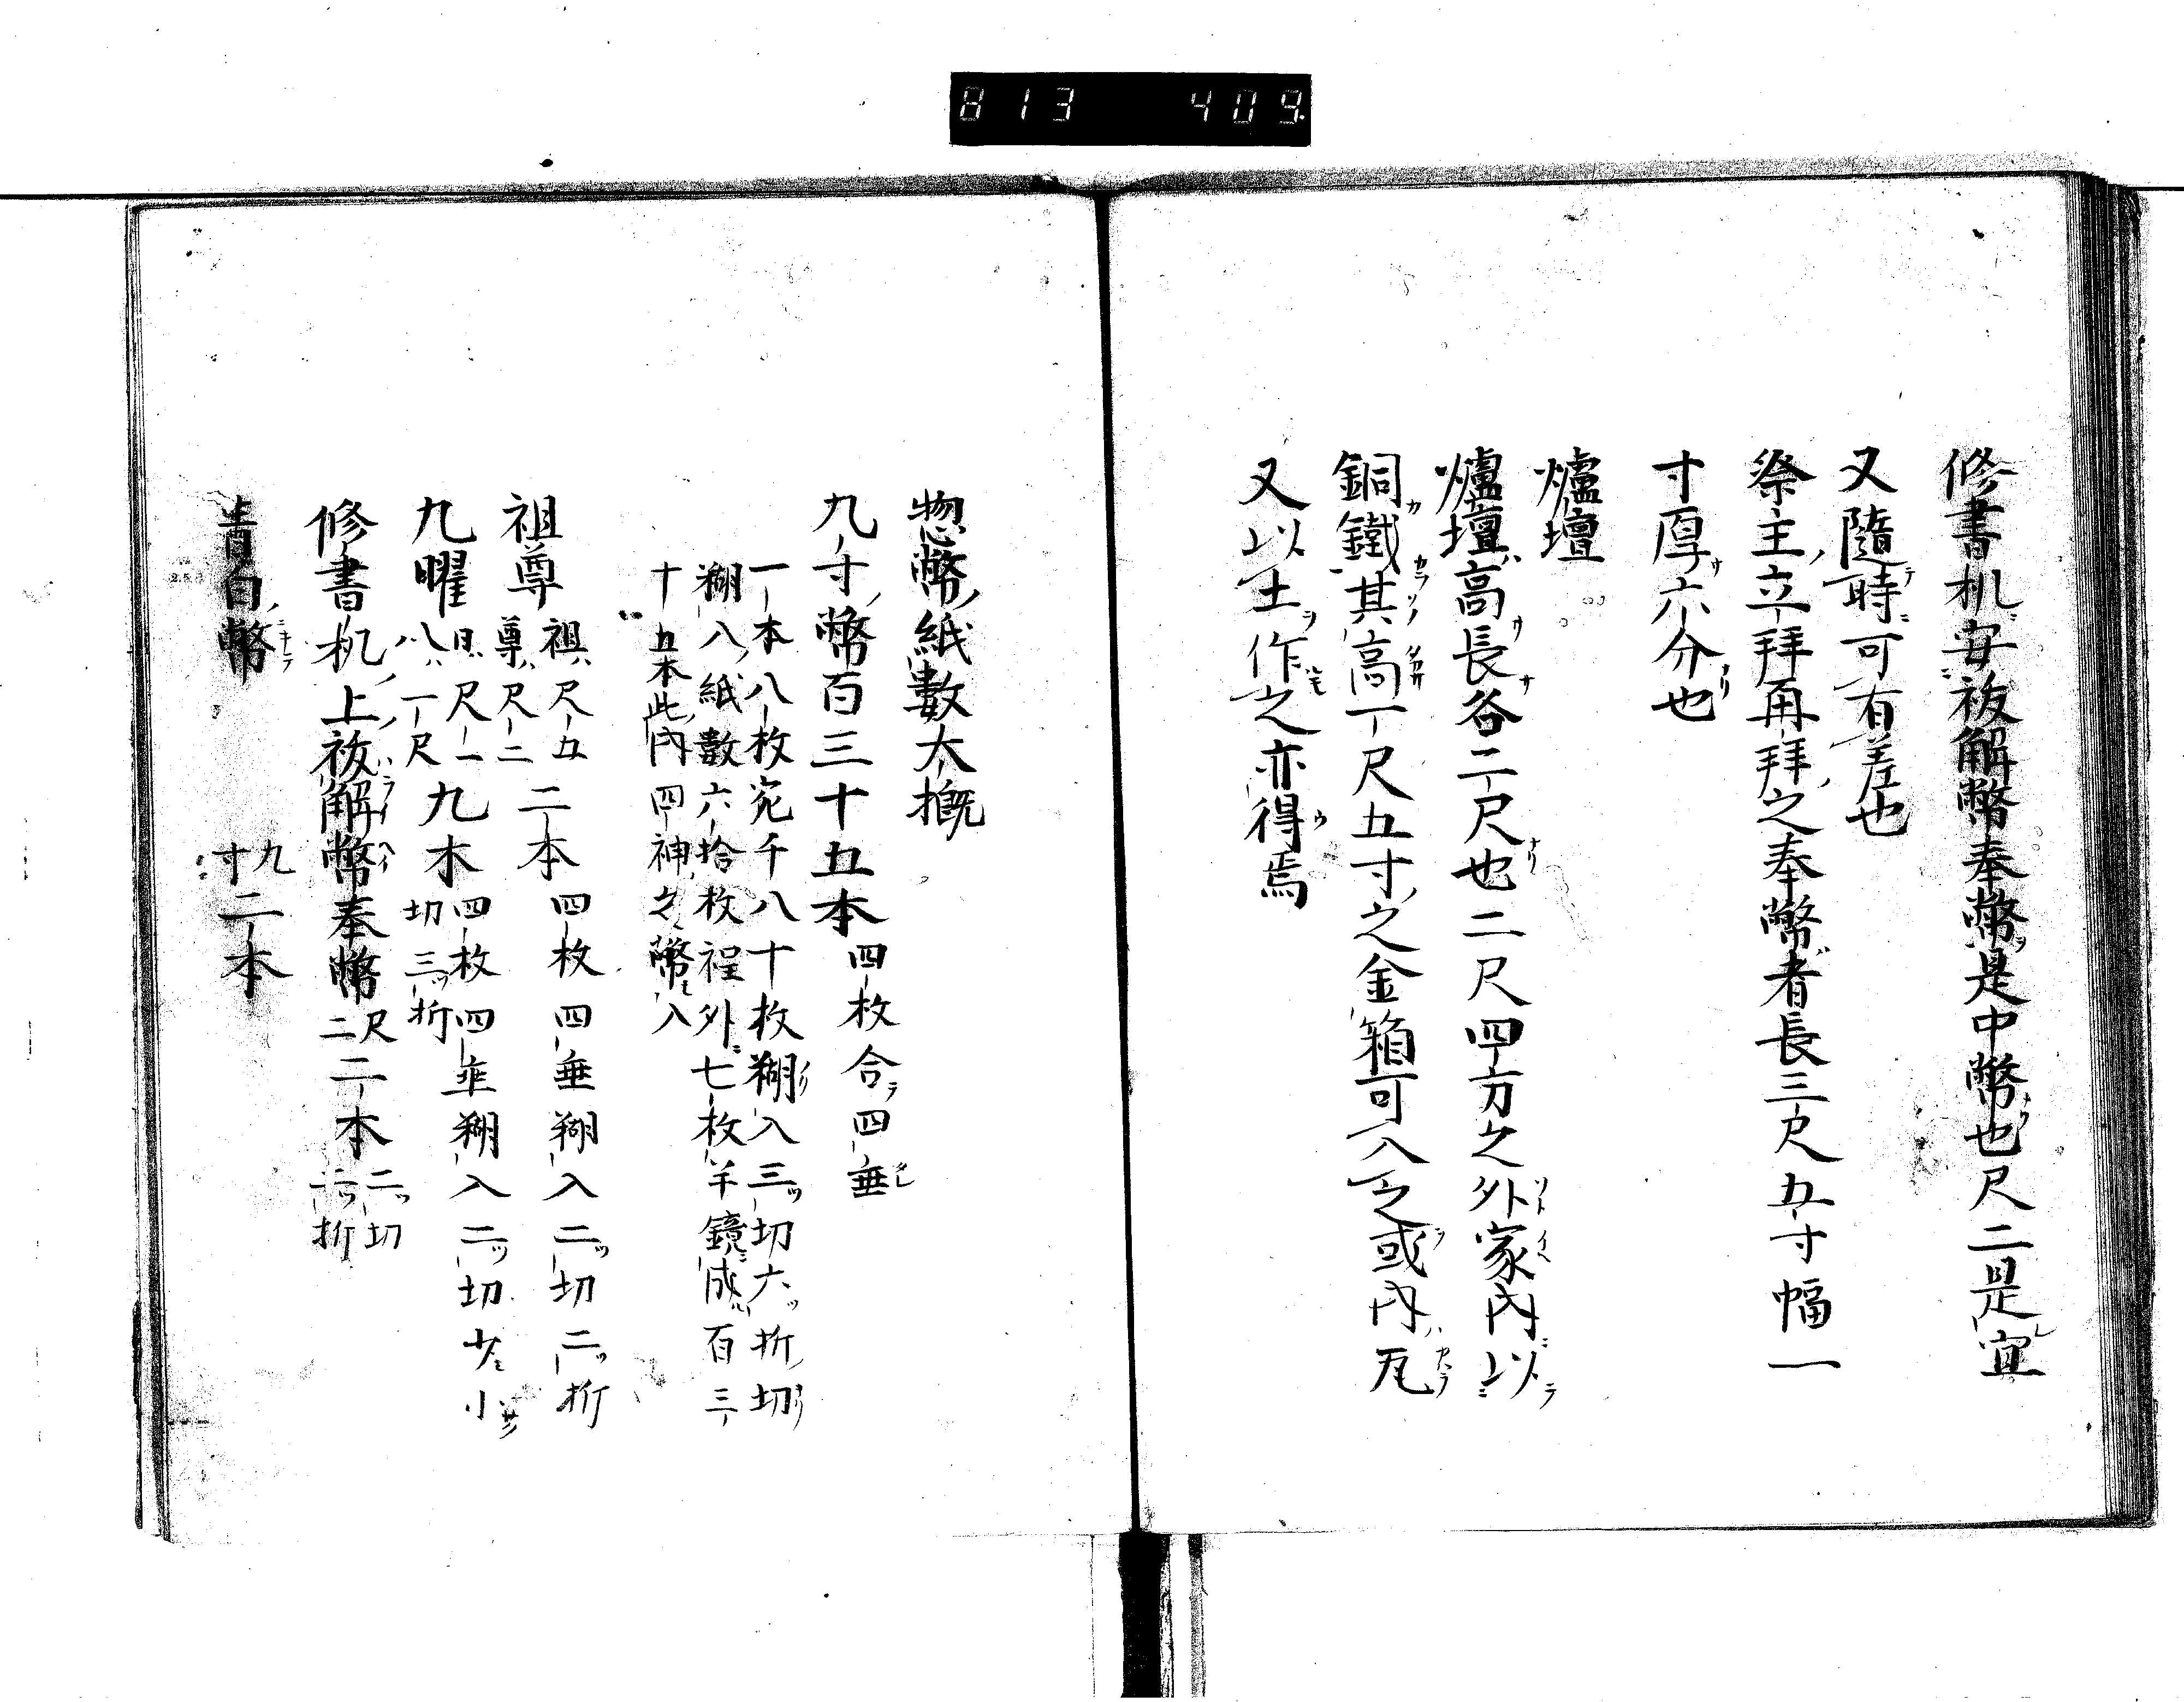 813 409
修書机安祓解幣奉幣是中幣也尺二是宜
又隨時可有差也
祭主立拜再拜之奉幣者長三尺五寸幅一
寸厚六分也
爐壇
爐壇高長各二尺也二尺四方之外家内以
銅鐵其高一尺五寸之金箱可入之或内瓦
又以土作之亦得焉
惣幣紙數大概
九寸幣百三十五本四枚合四垂
一本八枚宛千八十枚糊入三切六折切
糊八紙數六拾枚程外七枚羊鏡成百三
十五本此内四神之幣入
祖尊祖尺五尊尺二二本四枚四垂糊入二切二折
九曜日尺一八一尺九本四枚四垂糊入二切少小
切三折
修書机上祓解幣奉幣尺二二本二切二折
青白幣九寸二本